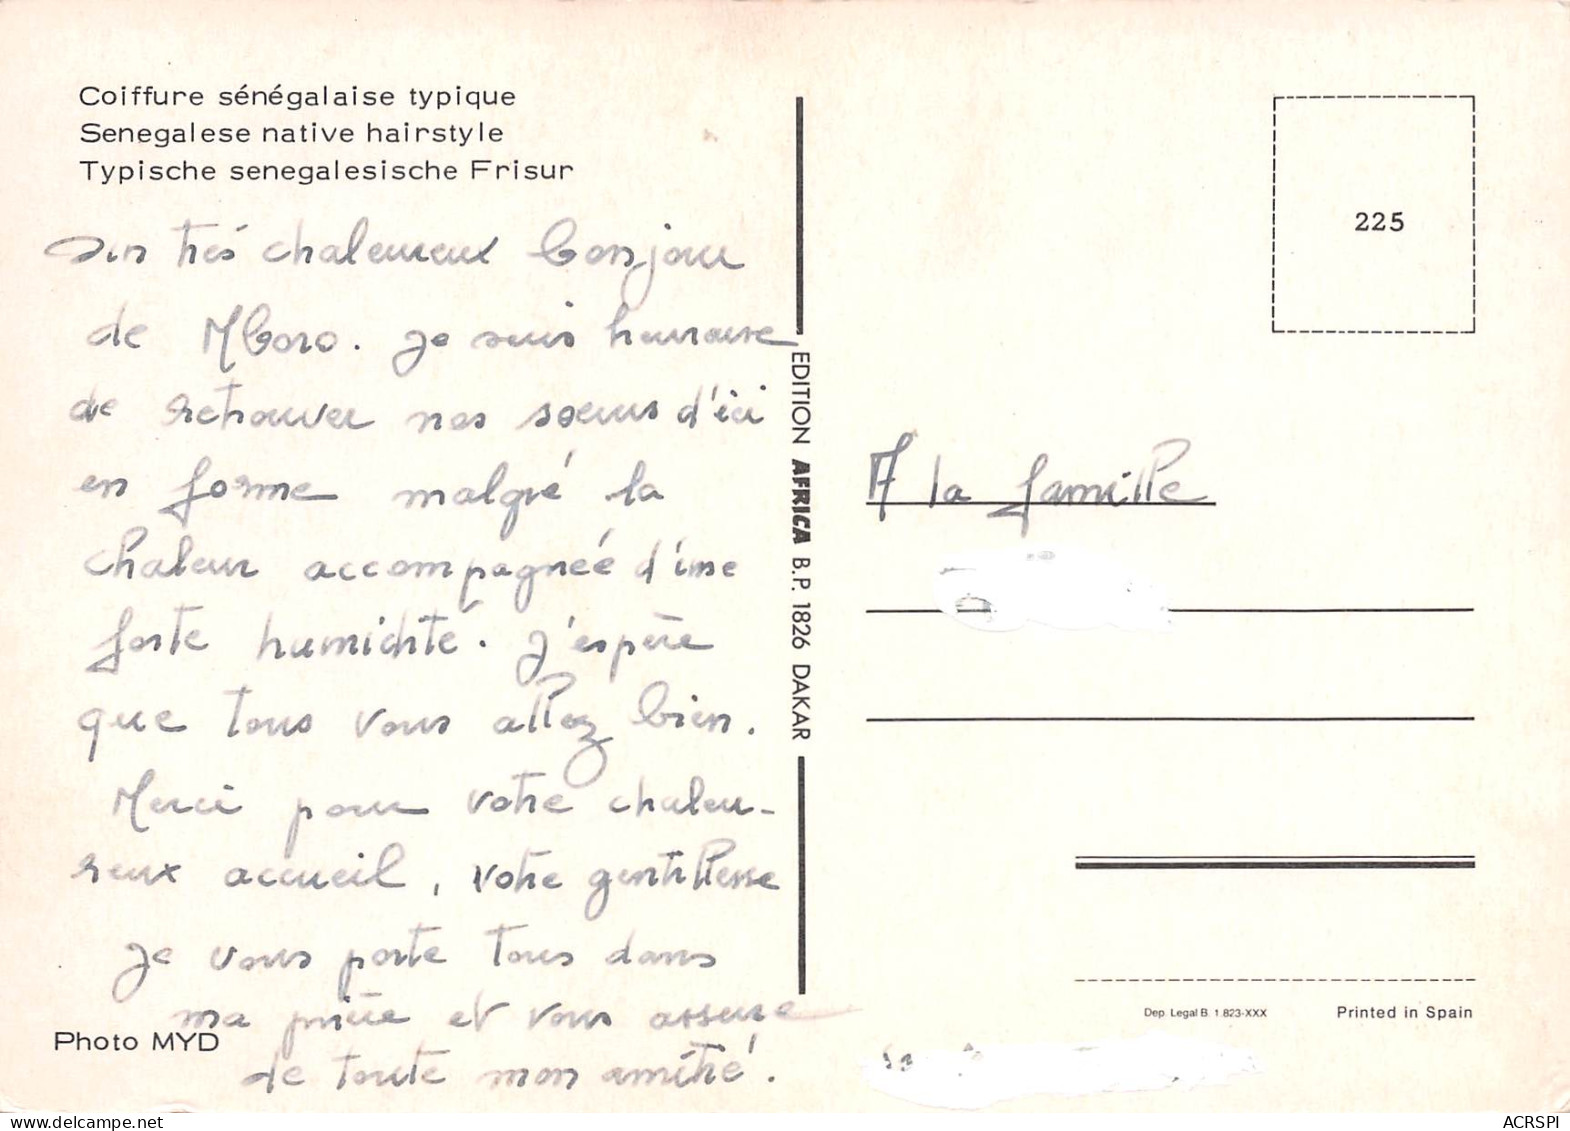 Coiffure sénégalaise typique
Senegalese native hairstyle
Typische senegalesische Frisur
Un très chaleureux bonjour
de Mboro. Je suis heureuse
de retrouver nos soeurs d'ici
en forme malgré la
chaleur accompagnée d'une
forte humidité. J'espère
que tous vous allez bien.
Merci pour votre chaleu-
reux accueil, votre gentillesse
Je vous porte tous dans
ma prière et vous assure
de toute mon amitié.
Photo MYD
EDITION AFRICA B.P. 1826 DAKAR
225
A la famille
Dep. Legal B. 1.823-XXX
Printed in Spain
ACRSPI